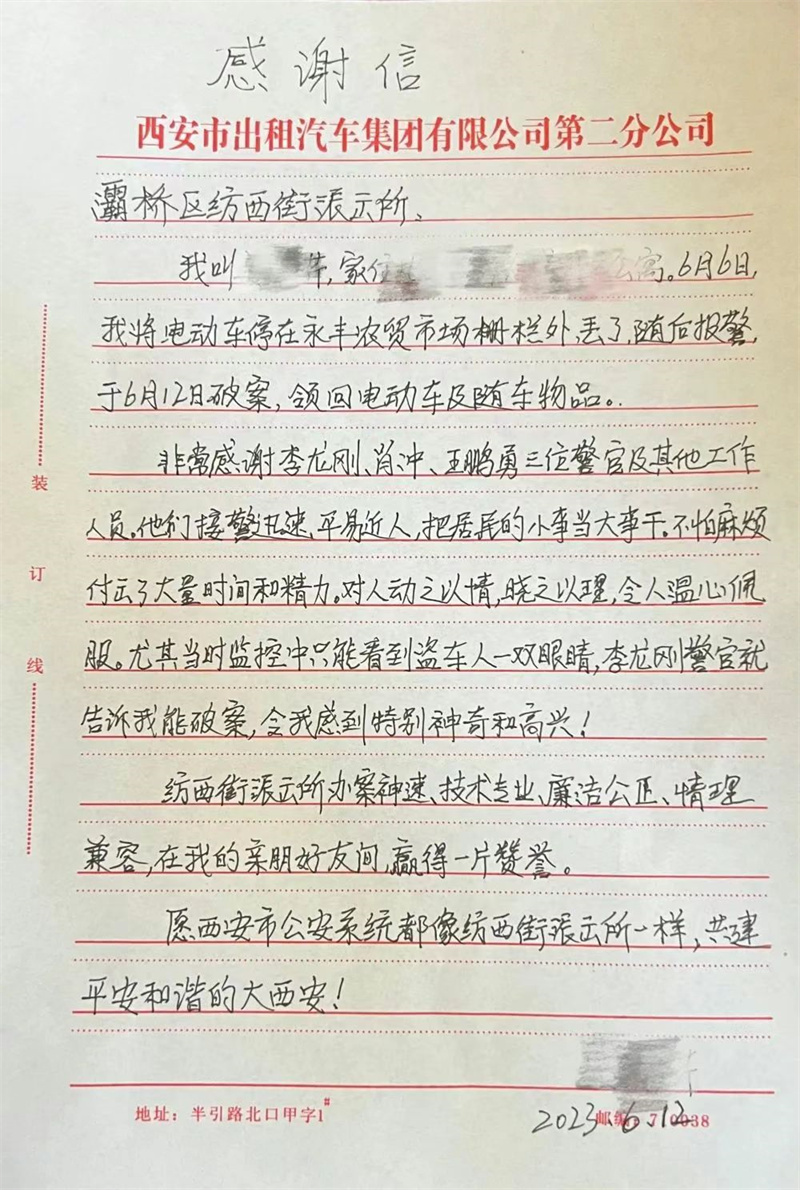 感谢信
西安市出租汽车集团有限公司第二分公司
灞桥区纺西街派出所、
我叫 华,家住 公寓。6月6日,
我将电动车停在永丰农贸市场栅栏外,丢了,随后报警,
于6月12日破案,领回电动车及随车物品。
非常感谢李龙刚、肖冲、王鹏勇三位警官及其他工作
人员。他们接警迅速、平易近人,把居民的小事当大事干。不怕麻烦
付出了大量时间和精力。对人动之以情,晓之以理,令人温心佩
服。尤其当时监控中只能看到盗车人一双眼睛,李龙刚警官就
告诉我能破案,令我感到特别神奇和高兴!
纺西街派出所办案神速、技术专业、廉洁公正、情理
兼容,在我的亲朋好友间,赢得一片赞誉。
愿西安市公安系统都像纺西街派出所一样,共建
平安和谐的大西安!
装
订
线
地址:半引路北口甲字1#
邮编:710038
2023.6.12